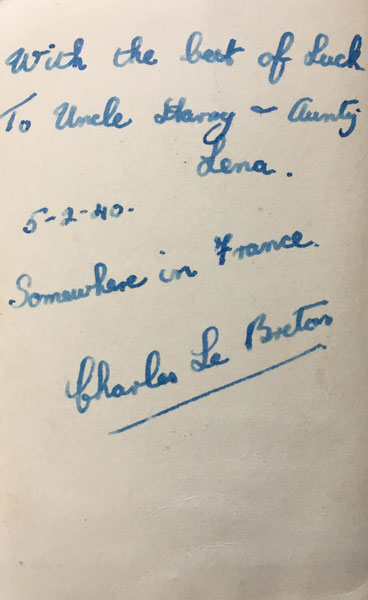 With the best of Luck
To Uncle Harry ~ Aunty
Lena.
5-2-40.
Somewhere in France.
Charles Le Breton